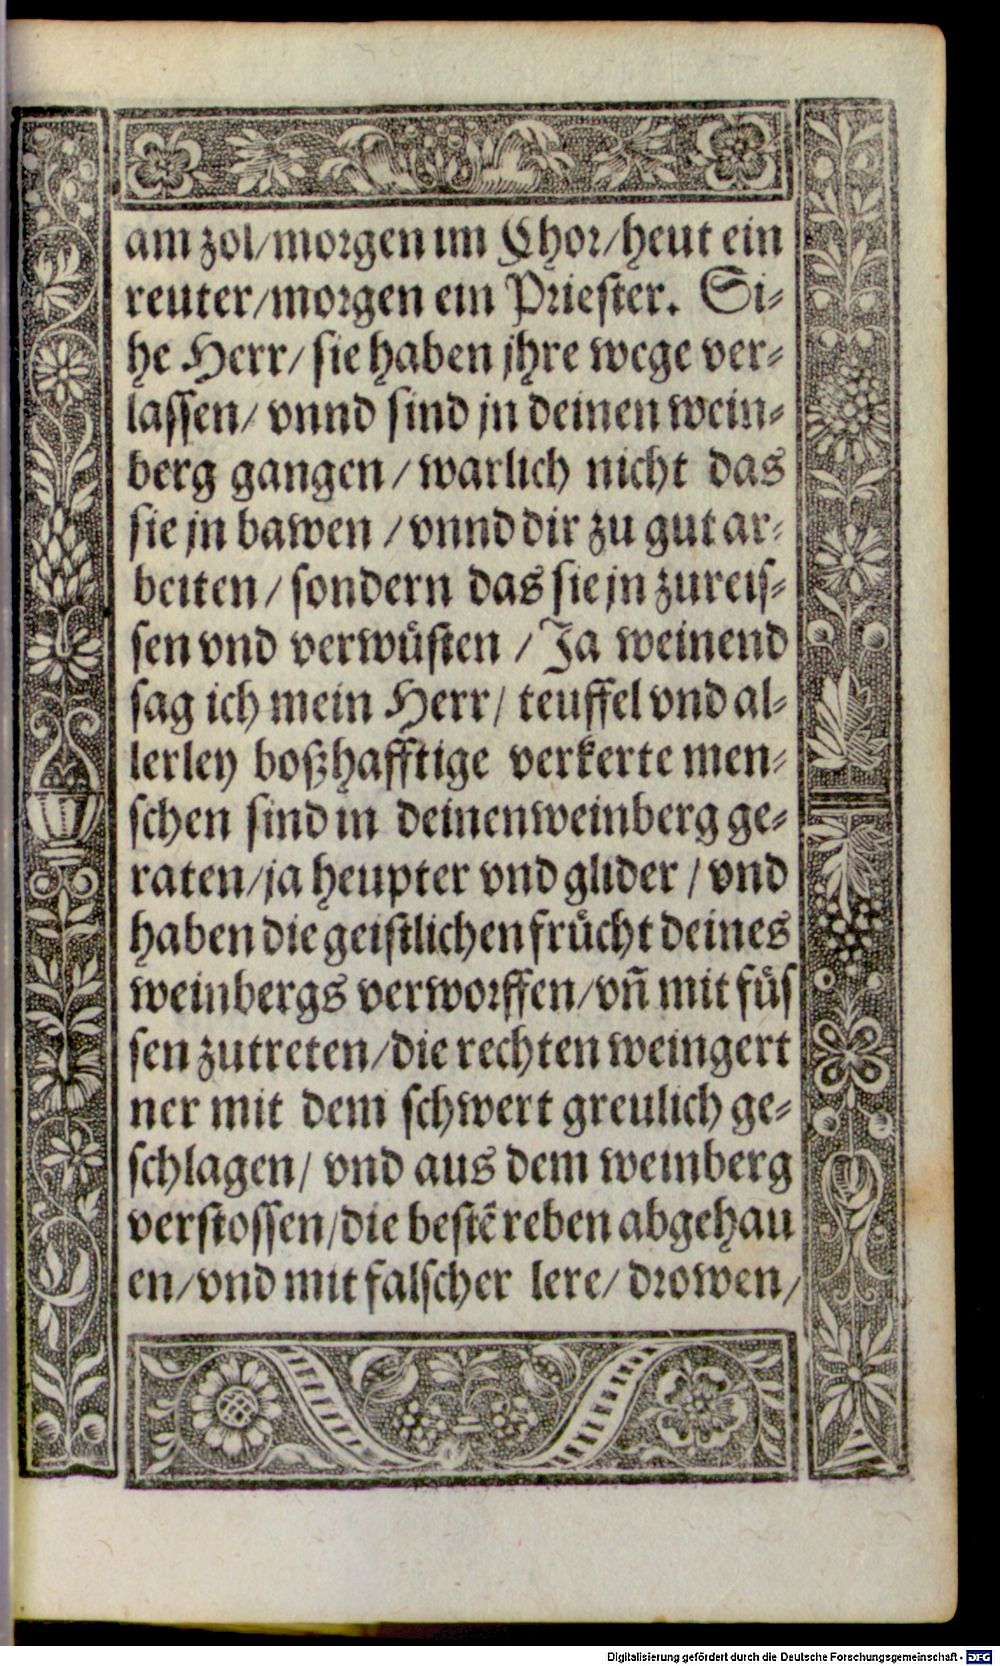 am zol/morgen im Chor/heut ein
reuter/morgen ein Priester. Si⸗
he Herr/ sie haben jhre wege ver⸗
lassen/ vnnd sind jn deinen wein⸗
berg gangen/warlich nicht das
sie jn bawen /vnnd dir zu gut ar⸗
beiten/sondern das sie jn zureis⸗
sen vnd verwuͤsten /Ja weinend
sag ich mein Herr/ teuffel vnd al⸗
lerley boßhafftige verkerte men⸗
schen sind in deinen weinberg ge⸗
raten/ja heupter vnd glider /vnd
haben die geistlichen fruͤcht deines
weinbergs verworffen/vñ mit fuͤs
sen zutreten/die rechten weingert
ner mit dem schwert greulich ge⸗
schlagen/ vnd aus dem weinberg
verstossen/die bestẽ reben abgehau
en/vnd mit falscher lere/ drowen/
Digitalisierung gefördert durch die Deutsche Forschungsgemeinschaft - DFG